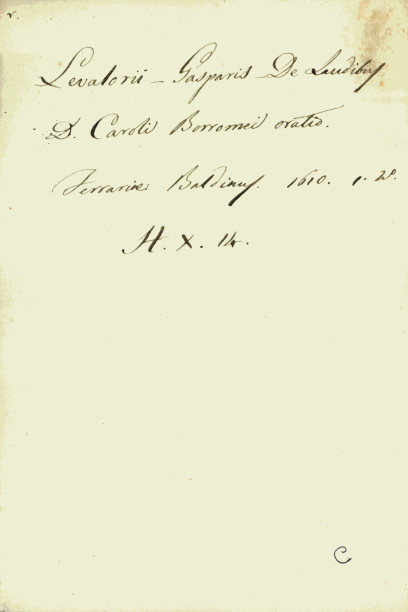 Levalorii - Gasparis - De Laudibus
D. Caroli Borromei oratio.
Ferrariæ Baldinus. 1610.
H. X. 14.
C